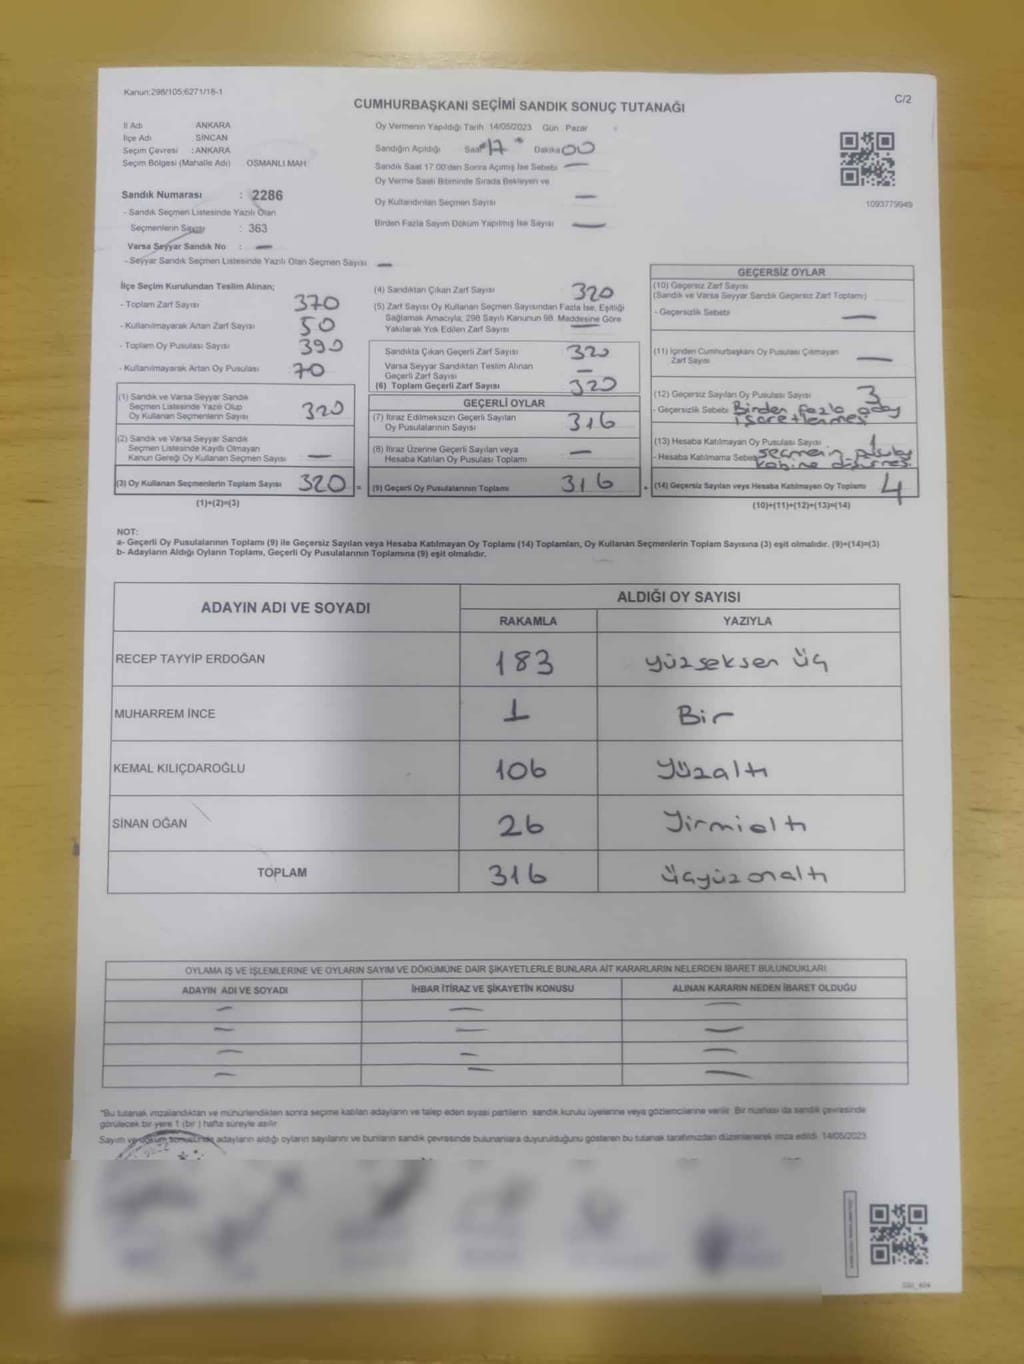 Kanun:298/105;6271/18-1
CUMHURBAŞKANI SEÇİMİ SANDIK SONUÇ TUTANAĞI
C/2
İl Adı ANKARA
İlçe Adı SİNCAN
Seçim Çevresi : ANKARA
Seçim Bölgesi (Mahalle Adı) OSMANLI MAH
Sandık Numarası : 2286
- Sandık Seçmen Listesinde Yazılı Olan
Seçmenlerin Sayısı : 363
Varsa Seyyar Sandık No : —
- Seyyar Sandık Seçmen Listesinde Yazılı Olan Seçmen Sayısı —
Oy Vermenin Yapıldığı Tarih 14/05/2023 Gün Pazar
Sandığın Açıldığı Saat 17 Dakika 00
Sandık Saat 17.00'den Sonra Açılmış İse Sebebi —
Oy Verme Saati Bitiminde Sırada Bekleyen ve
Oy Kullandırılan Seçmen Sayısı —
Birden Fazla Sayım Döküm Yapılmış İse Sayısı —
1093779949
İlçe Seçim Kurulundan Teslim Alınan;
- Toplam Zarf Sayısı 370
- Kullanılmayarak Artan Zarf Sayısı 50
- Toplam Oy Pusulası Sayısı 390
- Kullanılmayarak Artan Oy Pusulası 70
(1) Sandık ve Varsa Seyyar Sandık
Seçmen Listesinde Yazılı Olup
Oy Kullanan Seçmenlerin Sayısı 320
(2) Sandık ve Varsa Seyyar Sandık
Seçmen Listesinde Kayıtlı Olmayan
Kanun Gereği Oy Kullanan Seçmen Sayısı —
(3) Oy Kullanan Seçmenlerin Toplam Sayısı 320 =
(1)+(2)=(3)
(4) Sandıktan Çıkan Zarf Sayısı 320
(5) Zarf Sayısı Oy Kullanan Seçmen Sayısından Fazla İse, Eşitliği
Sağlamak Amacıyla, 298 Sayılı Kanunun 98. Maddesine Göre
Yakılarak Yok Edilen Zarf Sayısı —
Sandıkta Çıkan Geçerli Zarf Sayısı 320
Varsa Seyyar Sandıktan Teslim Alınan
Geçerli Zarf Sayısı —
(6) Toplam Geçerli Zarf Sayısı 320
GEÇERLİ OYLAR
(7) İtiraz Edilmeksizin Geçerli Sayılan
Oy Pusulalarının Sayısı 316
(8) İtiraz Üzerine Geçerli Sayılan veya
Hesaba Katılan Oy Pusulası Toplamı —
(9) Geçerli Oy Pusulalarının Toplamı 316 +
GEÇERSİZ OYLAR
(10) Geçersiz Zarf Sayısı
(Sandık ve Varsa Seyyar Sandık Geçersiz Zarf Toplamı)
- Geçersizlik Sebebi —
(11) İçinden Cumhurbaşkanı Oy Pusulası Çıkmayan
Zarf Sayısı —
(12) Geçersiz Sayılan Oy Pusulası Sayısı 3
- Geçersizlik Sebebi Birden fazla aday
işaretlenmesi
(13) Hesaba Katılmayan Oy Pusulası Sayısı 1
- Hesaba Katılmama Sebebi seçmenin pusulayı
kabine
(14) Geçersiz Sayılan veya Hesaba Katılmayan Oy Toplamı 4
(10)+(11)+(12)+(13)=(14)
NOT:
a- Geçerli Oy Pusulalarının Toplamı (9) ile Geçersiz Sayılan veya Hesaba Katılmayan Oy Toplamı (14) Toplamları, Oy Kullanan Seçmenlerin Toplam Sayısına (3) eşit olmalıdır. (9)+(14)=(3)
b- Adayların Aldığı Oyların Toplamı, Geçerli Oy Pusulalarının Toplamına (9) eşit olmalıdır.
ADAYIN ADI VE SOYADI ALDIĞI OY SAYISI
RAKAMLA YAZIYLA
RECEP TAYYİP ERDOĞAN 183 yüzseksen üç
MUHARREM İNCE 1 Bir
KEMAL KILIÇDAROĞLU 106 yüzaltı
SİNAN OĞAN 26 yirmialtı
TOPLAM 316 üçyüzonaltı
OYLAMA İŞ VE İŞLEMLERİNE VE OYLARIN SAYIM VE DÖKÜMÜNE DAİR ŞİKAYETLERLE BUNLARA AİT KARARLARIN NELERDEN İBARET BULUNDUKLARI
ADAYIN ADI VE SOYADI İHBAR İTİRAZ VE ŞİKAYETİN KONUSU ALINAN KARARIN NEDEN İBARET OLDUĞU
— — —
— — —
— — —
— — —
*Bu tutanak imzalandıktan ve mühürlendikten sonra seçime katılan adayların ve talep eden siyasi partilerin sandık kurulu üyelerine veya gözlemcilerine verilir. Bir nüshası da sandık çevresinde
görülecek bir yere 1 (bir ) hafta süreyle asılır.
Sayım ve döküm sonucunda adayların aldığı oyların sayılarını ve bunların sandık çevresinde bulunanlara duyurulduğunu gösteren bu tutanak tarafımızdan düzenlenerek imza edildi. 14/05/2023